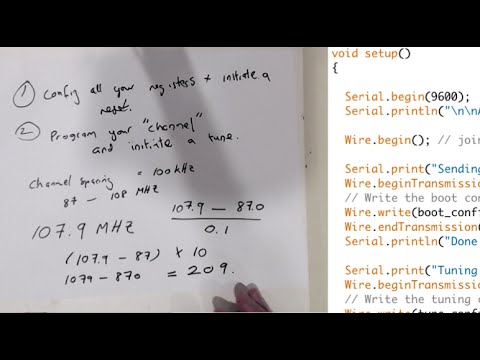 ① Config all your registers + initiate a
reset.
② Program your "channel"
and initiate a tune.
Channel spacing = 100 kHz
87 – 108 MHz
107.9 MHz
107.9 – 87.0
0.1
(107.9 – 87) × 10
1079 – 870 = 209.
void setup()
{
Serial.begin(9600);
Serial.println("\n\nA
Wire.begin(); // join
Serial.print("Sending
Wire.beginTransmiss
// Write the boot con
Wire.write(boot_conf
Wire.endTransmission
Serial.println("Done
Serial.print("Tuning
Wire.beginTransmiss
// Write the tuning c
Wire.write(tune_conf